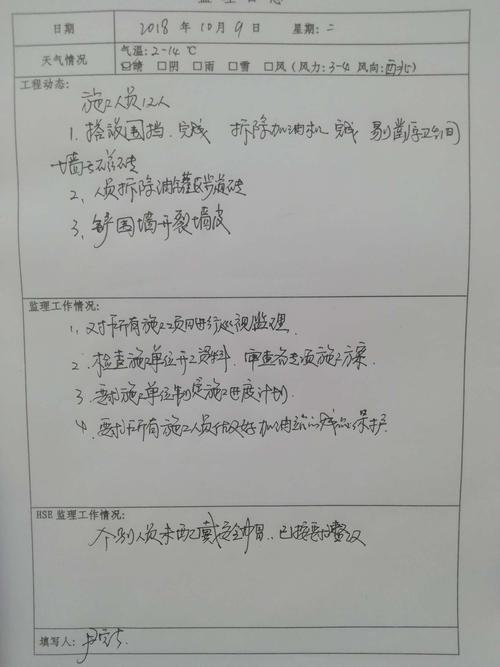 监理日志
日期 2018年10月9日 星期:二
天气情况 气温:2-14℃
☑晴 □阴 □雨 □雪 □风(风力:3-4 风向:西北)
工程动态:
施工人员12人
1、搭设围挡、完成 拆除加油机 完成 剔凿卫生间
墙上瓷砖
2、人员拆除油罐区步道砖
3、铲围墙开裂墙皮
监理工作情况:
1、对所有施工项目进行巡视监理
2、检查施工单位开工资料、审查各专项施工方案
3、要求施工单位制定施工进度计划
4、要求所有施工人员做好加油站的成品保护
HSE 监理工作情况:
个别人员未配戴安全帽、已按要求整改
填写人: